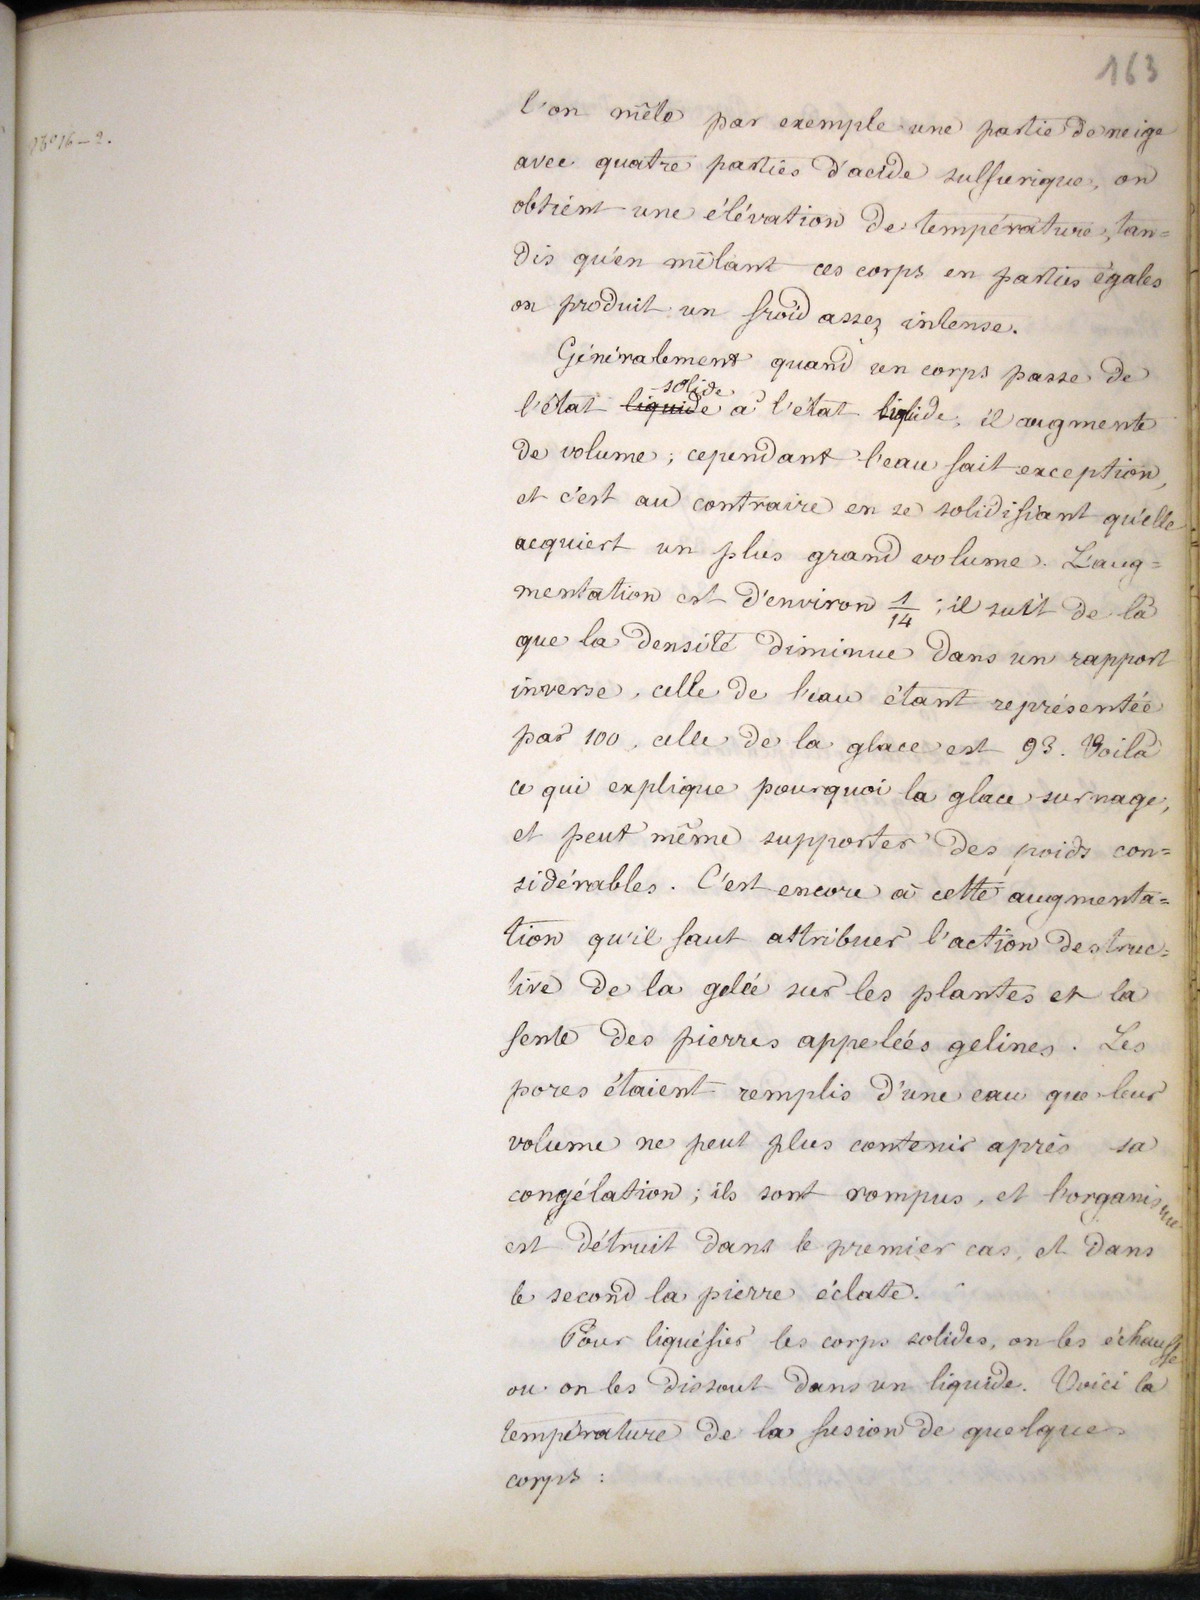 163
16 — 2.
l'on mêle par exemple une partie de neige
avec quatre parties d'acide sulfurique, on
obtient une élévation de température, tan=
dis qu'en mêlant ces corps en parties égales
on produit un froid assez intense.
Généralement quand un corps passe de
solide
l'état liquide à l'état liquide, il augmente
de volume ; cependant l'eau fait exception,
et c'est au contraire en se solidifiant qu'elle
acquiert un plus grand volume. L'aug=
mentation est d'environ 1/14 ; il suit de là
que la densité diminue dans un rapport
inverse, celle de l'eau étant représentée
par 100, celle de la glace est 93. Voilà
ce qui explique pourquoi la glace surnage,
et peut même supporter des poids con=
sidérables. C'est encore à cette augmenta=
tion qu'il faut attribuer l'action destruc=
tive de la gelée sur les plantes et la
fente des pierres appelées gelines. Les
pores étaient remplis d'une eau que leur
volume ne peut plus contenir après sa
congélation ; ils sont rompus, et l'organisme
est détruit dans le premier cas, et dans
le second la pierre éclate.
Pour liquéfier les corps solides, on les échauffe
ou on les dissout dans un liquide. Voici la
température de la fusion de quelques
corps :